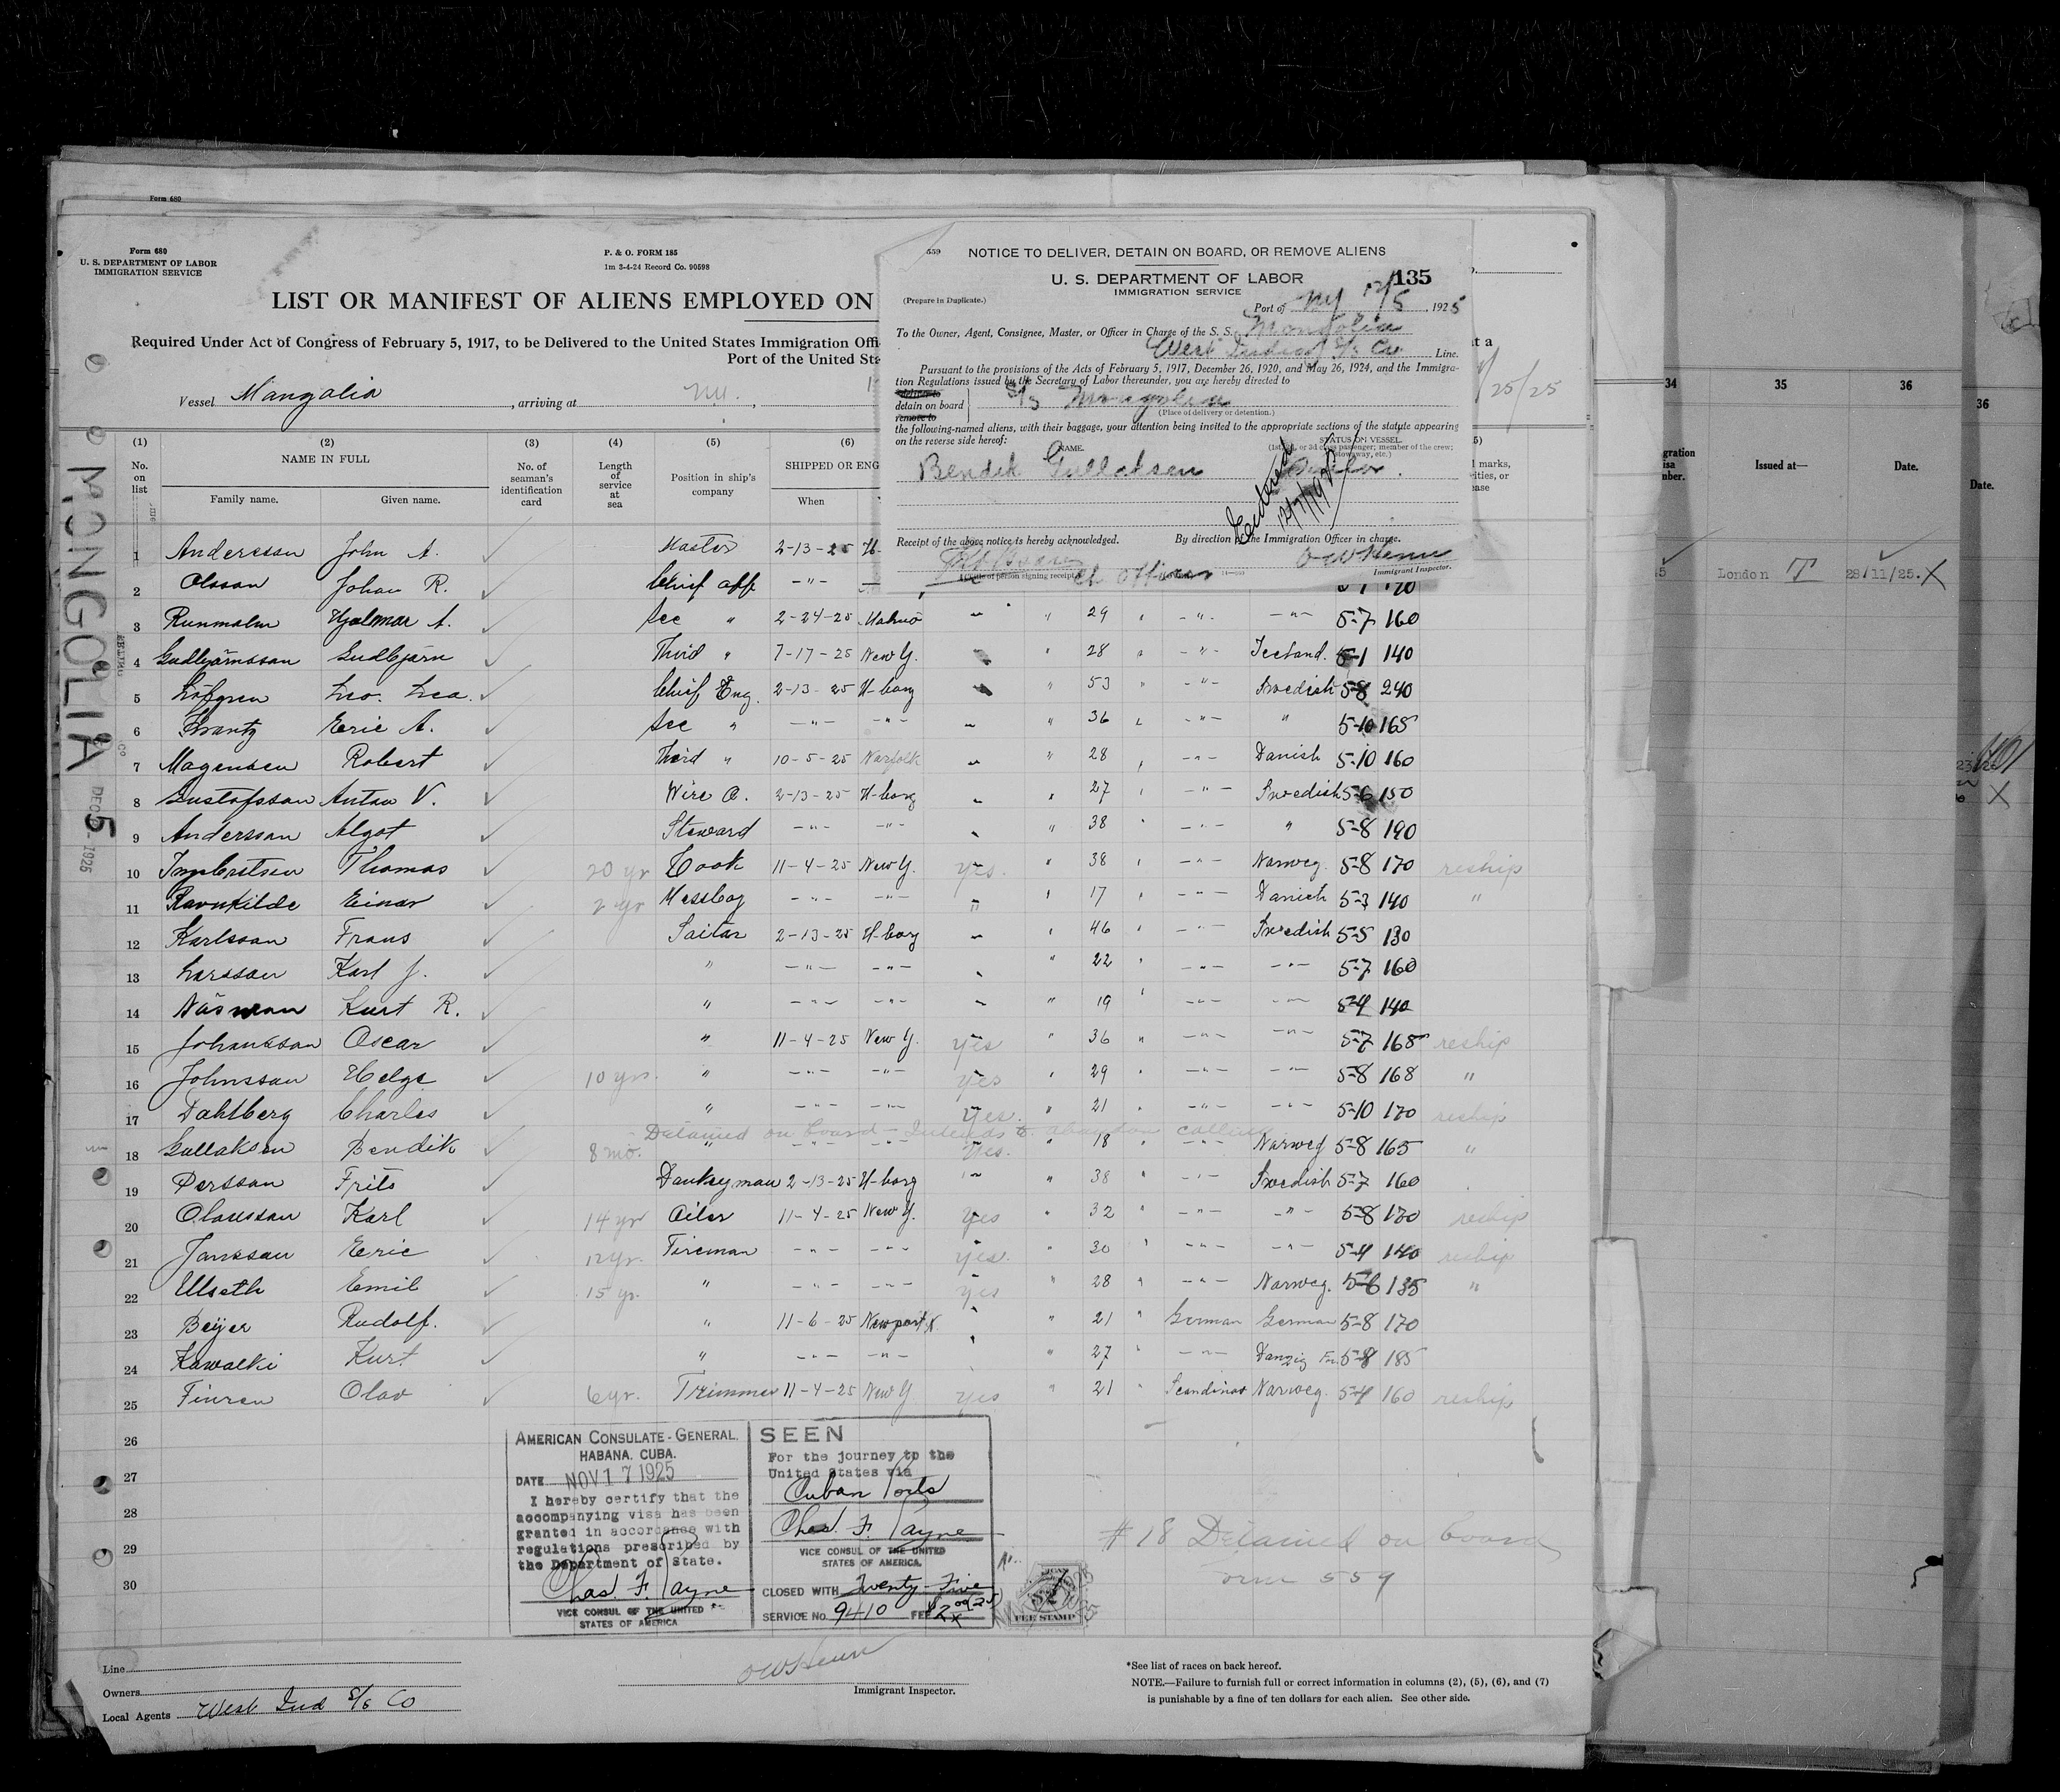 Form 680
Form 680
U. S. DEPARTMENT OF LABOR
IMMIGRATION SERVICE
P. & O. FORM 185
1m 3-4-24 Record Co. 90598
LIST OR MANIFEST OF ALIENS EMPLOYED ON
Required Under Act of Congress of February 5, 1917, to be Delivered to the United States Immigration Offi
Port of the United Sta
Vessel Mangolia , arriving at N.Y. ,
559 NOTICE TO DELIVER, DETAIN ON BOARD, OR REMOVE ALIENS
U. S. DEPARTMENT OF LABOR
135
IMMIGRATION SERVICE
(Prepare in Duplicate.)
Port of NY 12/5 , 1925
To the Owner, Agent, Consignee, Master, or Officer in Charge of the S. S. Mongolia
West Indies S/S Co Line.
Pursuant to the provisions of the Acts of February 5, 1917, December 26, 1920, and May 26, 1924, and the Immigra-
tion Regulations issued by the Secretary of Labor thereunder, you are hereby directed to
deliver to
detain on board S/S Mongolia
remove to
(Place of delivery or detention.)
the following-named aliens, with their baggage, your attention being invited to the appropriate sections of the statute appearing
on the reverse side hereof:
NAME.
STATUS ON VESSEL.
(1st, 2d, or 3d class passenger; member of the crew;
stowaway, etc.)
Bendik Gullaksen Sailor.
12/7/1925
Receipt of the above notice is hereby acknowledged.
By direction of the Immigration Officer in charge.
(Title of person signing receipt.)
Ch Officer
Immigrant Inspector.
25/25
(1) (2) (3) (4) (5) (6)
No. on list
NAME IN FULL
Family name. Given name.
No. of seaman's identification card
Length of service at sea
Position in ship's company
SHIPPED OR ENG
When
MONGOLIA
DEC 5 1925
1 Andersson John A. Master 2-13-25 H-
2 Olsson Johan R. Chief off -"-
3 Runmalm Hjalmar A. Sec " 2-24-25 Malmö " 29 " -"- -"- 5-7 160
4 Gudbjörnsson Gudbjörn Third " 7-17-25 New Y. " 28 " -"- Iceland. 5-1 140
5 Löfgren Leo. Lea. Chief Eng. 2-13-25 H-borg " 53 " -"- Swedish 5-8 240
6 Krantz Eric A. Sec " -"- -"- " 36 " -"- " 5-10 165
7 Magensen Robert Third " 10-5-25 Norfolk " 28 " -"- Danish 5-10 160
8 Gustafsson Anton V. Wire O. 2-13-25 H-borg " 27 " -"- Swedish 5-6 150
9 Andersson Algot Steward -"- -"- " 38 " -"- " 5-8 190
10 Ingebretsen Thomas 20 yr Cook 11-4-25 New Y. yes. " 38 " -"- Norweg. 5-8 170 reship
11 Ravnkilde Einar 2 yr Messboy -"- -"- " " 17 " -"- Danish 5-3 140 "
12 Karlsson Frans Sailor 2-13-25 H-borg " 46 " -"- Swedish 5-5 130
13 Larsson Karl J. " -"- -"- " 22 " -"- -"- 5-7 160
14 Näsman Kurt R. " -"- -"- " 19 " -"- -"- 5-4 140
15 Johansson Oscar " 11-4-25 New Y. yes " 36 " -"- -"- 5-7 168 reship
16 Johnsson Helge 10 yrs. " -"- -"- yes " 29 " -"- -"- 5-8 168 "
17 Dahlberg Charles " -"- -"- Yes. " 21 " -"- -"- 5-10 170 reship
Detained on board - Intends to abandon calling
18 Gullaksen Bendik 8 mo. " -"- -"- Yes. " 18 " -"- Norweg 5-8 165 "
19 Persson Frits Donkeyman 2-13-25 H-borg " 38 " -"- Swedish 5-7 160
20 Olausson Karl 14 yr Oiler 11-4-25 New Y. yes " 32 " -"- -"- 5-8 170 reship
21 Jansson Eric 12 yr. Fireman -"- -"- yes. " 30 " -"- -"- 5-4 140 reship
22 Ulseth Emil 15 yr. " -"- -"- yes " 28 " -"- Norweg. 5-6 135 "
23 Beijer Rudolf. " 11-6-25 Newport N. " 21 " German German 5-8 170
24 Kawalki Kurt " -"- -"- " 27 " -"- Danzig 5-8 185
25 Finren Olav 6 yr. Trimmer 11-4-25 New Y yes " 21 " Scandinav Norweg. 5-4 160 reship
26
27
28
29
30
AMERICAN CONSULATE-GENERAL,
HABANA, CUBA.
DATE NOV 17 1925
I hereby certify that the
accompanying visa has been
granted in accordance with
regulations prescribed by
the Department of State.
Chas. F. Payne
VICE CONSUL OF THE UNITED
STATES OF AMERICA
SEEN
For the journey to the
United States via
Cuban Ports
Chas. F. Payne
VICE CONSUL OF THE UNITED
STATES OF AMERICA.
CLOSED WITH Twenty-Five
SERVICE No. 9410 FEE
$2
FEE STAMP
#18 Detained on board
559
Line
Owners
Local Agents West Ind S/S Co
Immigrant Inspector.
*See list of races on back hereof.
NOTE.—Failure to furnish full or correct information in columns (2), (5), (6), and (7)
is punishable by a fine of ten dollars for each alien. See other side.
34 35 36
Issued at— Date.
London T 28/11/25. X
36
Date.
X